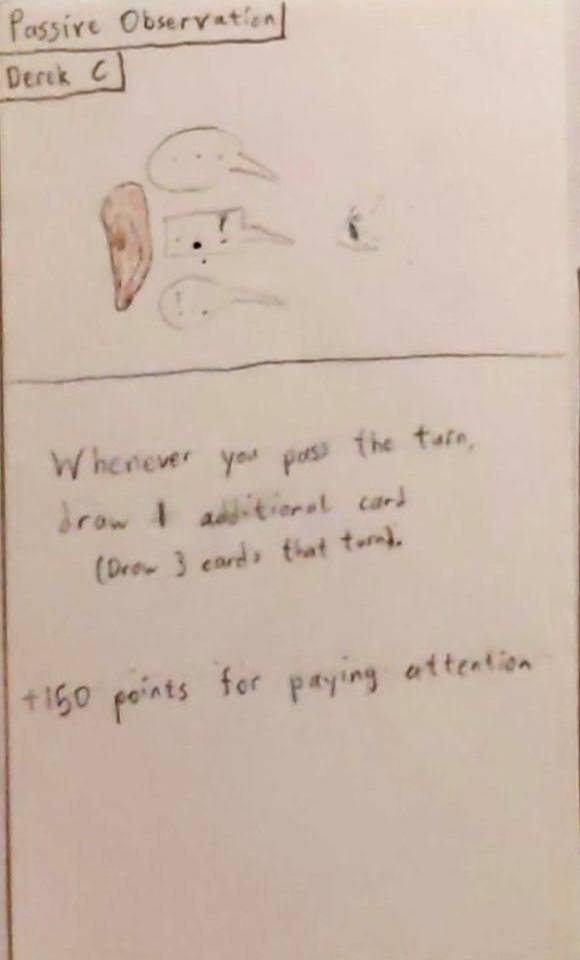 Passive Observation
Derek C
Whenever you pass the turn,
draw 1 additional card
(Draw 3 cards that turn).
+150 points for paying attention